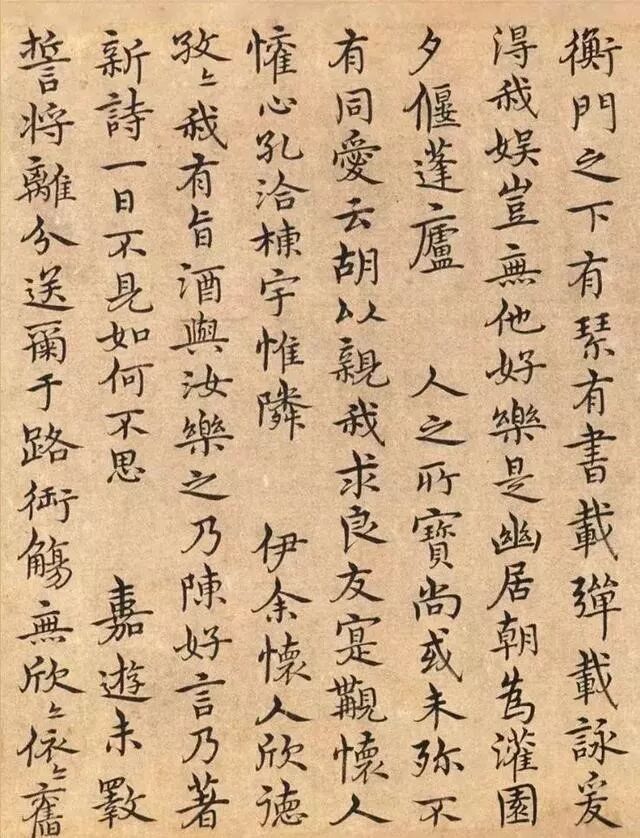 衡門之下有琴有書載彈載詠爰
得我娱豈無他好樂是幽居朝為灌園
夕偃蓬廬 人之所寶尚或未弥不
有同愛云胡以親我求良友寔覯懷人
懽心孔洽棟宇惟隣 伊余懷人欣徳
孜〻我有旨酒與汝樂之乃陳好言乃著
新詩一日不見如何不思 嘉遊未斁
誓将離分送爾于路銜觴無欣〻依〻舊